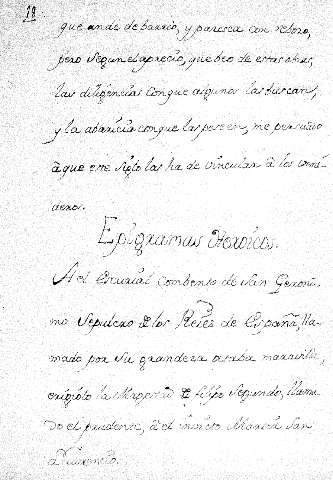 18
que ande de barrio, y paresca con reboso,
pero segun el aprecio, que beo de estas obras,
las diligencias con que algunos las buscan,
y la abaricia con que las poseen, me persuado
à que este siglo las ha de vincular à los veni-
deros.
Epigramas Heroicos.
A el Escurial combento de San Geroni-
mo Sepulcro de los Reies de España, lla-
mado por su grandeza octaba marauilla,
erigiolo la Magestad de Filipo Segundo, llama-
do el prudente, à el invicto Martir San
Laurencio.